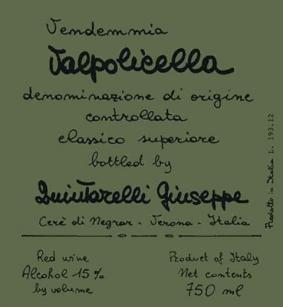 Vendemmia
Valpolicella
denominazione di origine
controllata
classico superiore
bottled by
Quintarelli Giuseppe
Cerè di Negrar - Verona - Italia
Red wine
Alcohol 15%
by volume
Product of Italy
Net contents
750 ml
Prodotto in Italia L. 193.12